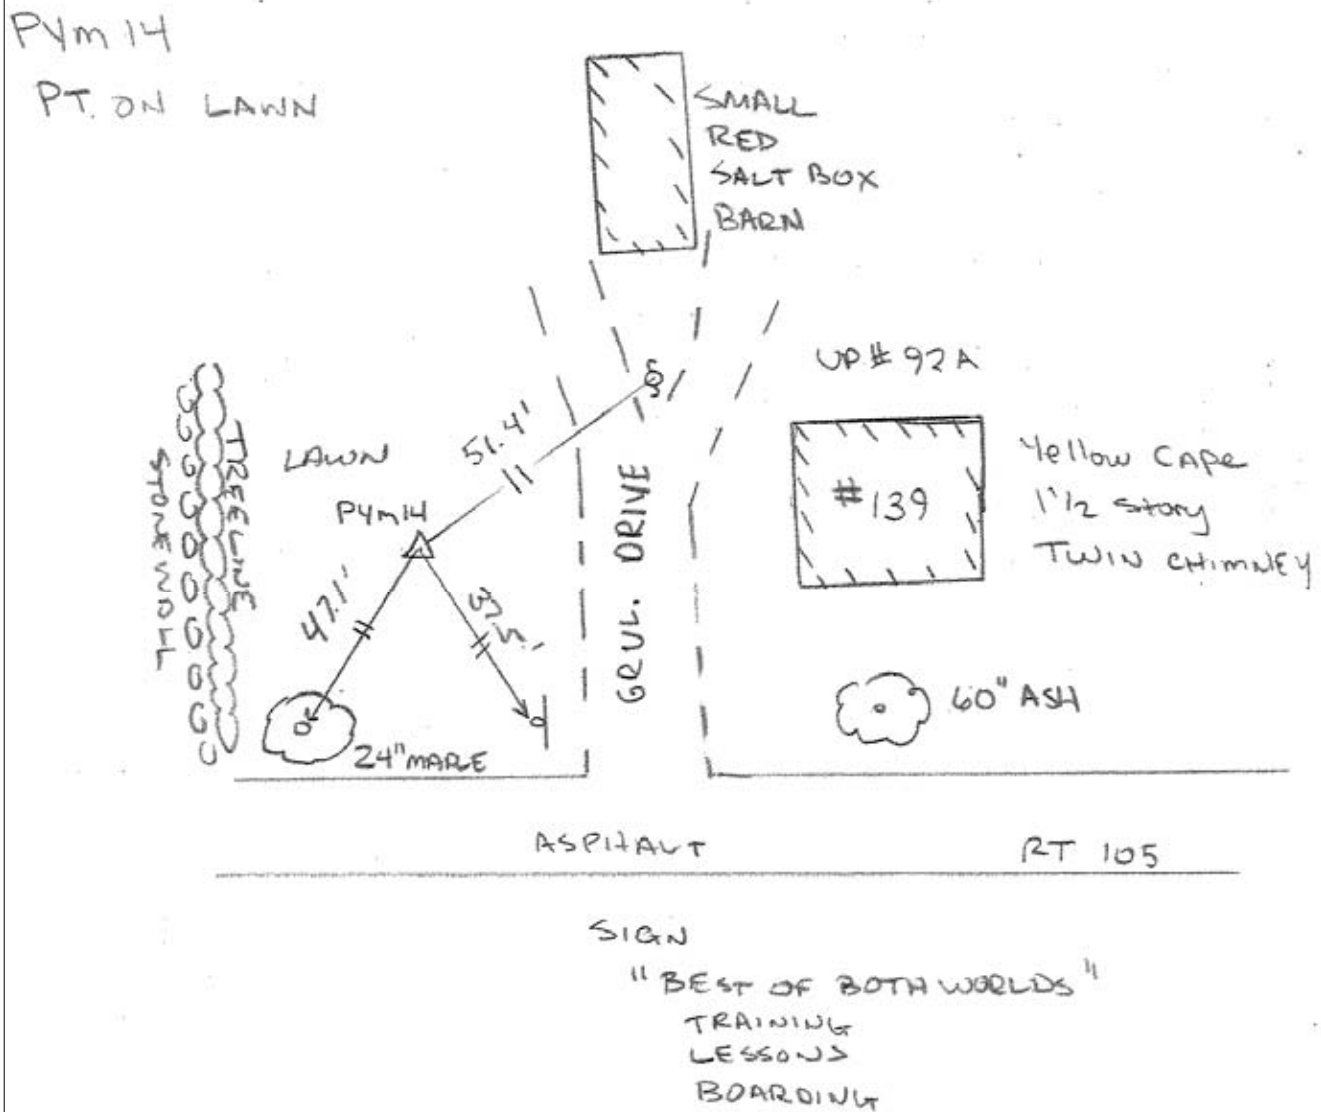 PYM 14
PT. ON LAWN
SMALL
RED
SALT BOX
BARN
UP # 92A
51.4'
LAWN
TREELINE
STONEWALL
PYM14
47.1'
37.5'
GRVL. DRIVE
# 139
Yellow CAPe
1 1/2 STORY
TWIN CHIMNEY
24" MAPLE
60" ASH
ASPHALT
RT 105
SIGN
"BEST OF BOTH WORLDS"
TRAINING
LESSONS
BOARDING